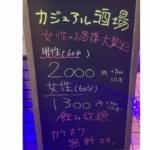 カジュアル酒場
女性のお客様大歓迎
男性(60分)
2000円
女性(60分)
1300円
飲み放題
カラオケ
無料